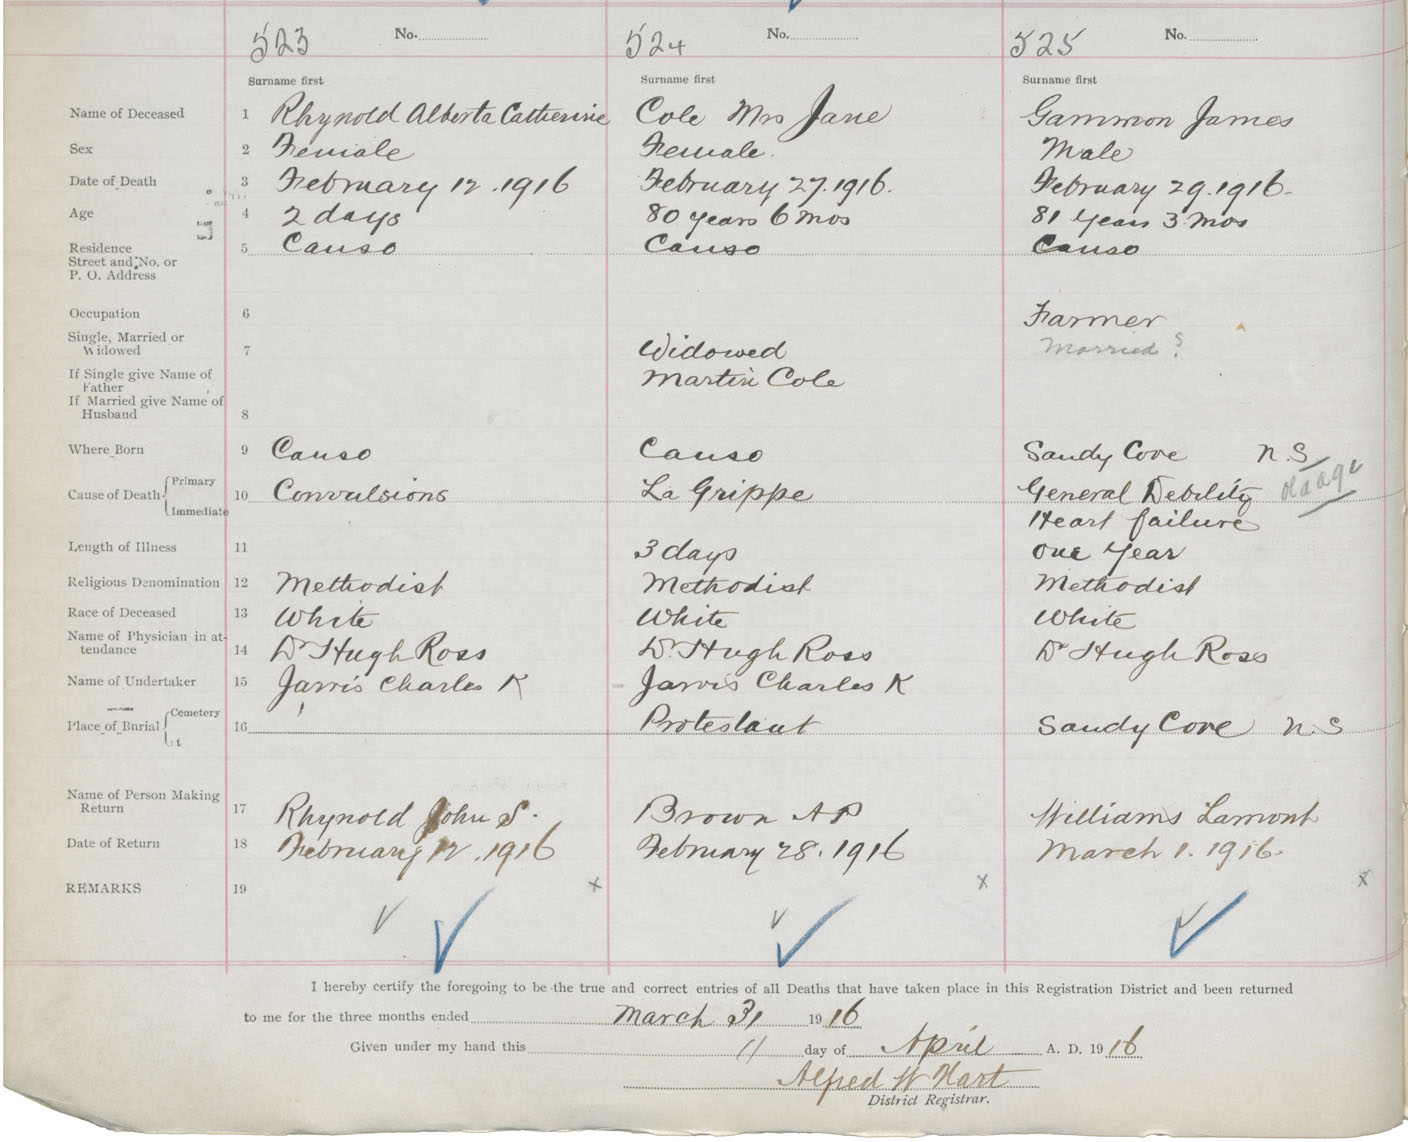 523 No. 524 No. 525 No.
Surname first Surname first Surname first
Name of Deceased 1 Rhynold Alberta Catherine Cole Mrs Jane Gammon James
Sex 2 Female Female. Male
Date of Death 3 February 12. 1916 February 27. 1916. February 29. 1916-
Age 4 2 days 80 years 6 mos 81 years 3 mos
Residence 5 Canso Canso Canso
Street and No. or
P. O. Address
Occupation 6 Farmer
Single, Married or
Widowed 7 Widowed Married ?
If Single give Name of Martin Cole
Father
If Married give Name of
Husband 8
Where Born 9 Canso Canso Sandy Cove N.S
Cause of Death { Primary 10 Convulsions La Grippe General Debility old age
Immediate Heart failure
Length of Illness 11 3 days one year
Religious Denomination 12 Methodist Methodist Methodist
Race of Deceased 13 White White White
Name of Physician in at-
tendance 14 Dr Hugh Ross Dr. Hugh Ross Dr Hugh Ross
Name of Undertaker 15 Jarvis Charles K Jarvis Charles K
Place of Burial { Cemetery 16 Protestant Sandy Cove N.S
Name of Person Making
Return 17 Rhynold John S. Brown A P Williams Lamont
Date of Return 18 February 12. 1916 February 28. 1916 March 1. 1916-
REMARKS 19 x x x
I hereby certify the foregoing to be the true and correct entries of all Deaths that have taken place in this Registration District and been returned
to me for the three months ended March 31 1916
Given under my hand this 11 day of April A. D. 1916
Alfred W Hart
District Registrar.